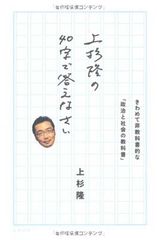 きわめて非教科書的な
「政治と社会の教科書」
上杉隆の
40字で答えなさい
上杉 隆